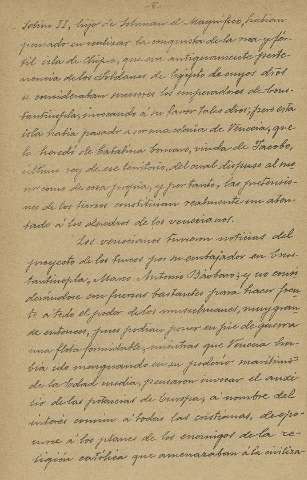 -6-
Selim II, hijo de Soliman el Magnífico, habían
pensado en realizar la conquista de la rica y fér-
til isla de Chipre, que era antiguamente perte-
nencia de los Soldanes de Egipto de cuyos dros
se consideraban sucesores los emperadores de Cons-
tantinopla, invocando á su favor tales dros; pero esta
isla había pasado a ser una colonia de Venecia, que
la heredó de Catalina Cornaro, viuda de Jacobo,
último rey de ese territorio, del cual dispuso al me
no como de cosa propia, y por tanto, las pretensio-
nes de los turcos constituían realmente un aten-
tado á los derechos de los venecianos.
Los venecianos tuvieron noticias del
proyecto de los turcos por su embajador en Cons-
tantinopla, Marco Antonio Bárbaro; y no consi
derándose con fuerzas bastantes para hacer fren
te a todo el poder de los musulmanes, muy gran
de entonces, pues podían poner en pie de guerra
una flota formidable, mientras que Venecia ha-
bía ido menguando en su poderío marítimo
de la Edad media, pensaron invocar el auxi-
lio de las potencias de Europa, a nombre del
interés común á todas las cristianas, de opo-
nerse á los planes de los enemigos de la re-
ligión católica que amenazaban á la civiliza-